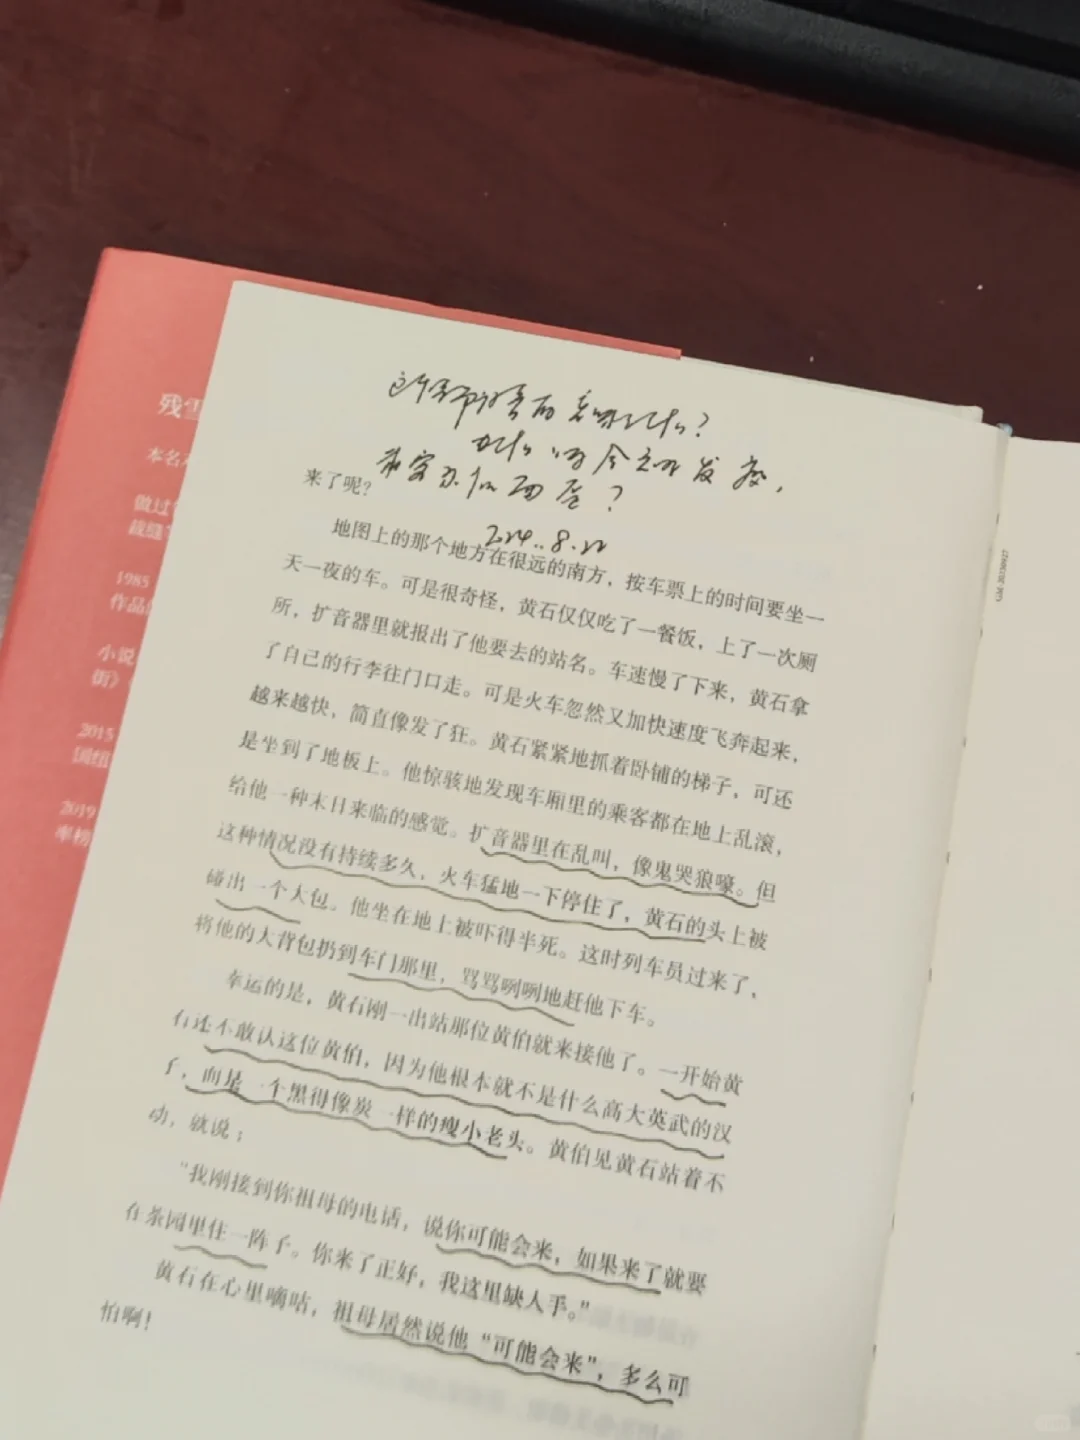 残雪
本名
做过
裁缝
1985
作品
小说
街》
2015
国
2019
率榜
意味着什么?
为什么 会 发疯,
乘客 ?
2024.8.22
来了呢?
地图上的那个地方在很远的南方,按车票上的时间要坐一
天一夜的车。可是很奇怪,黄石仅仅吃了一餐饭,上了一次厕
所,扩音器里就报出了他要去的站名。车速慢了下来,黄石拿
了自己的行李往门口走。可是火车忽然又加快速度飞奔起来,
越来越快,简直像发了狂。黄石紧紧地抓着卧铺的梯子,可还
是坐到了地板上。他惊骇地发现车厢里的乘客都在地上乱滚,
给他一种末日来临的感觉。扩音器里在乱叫,像鬼哭狼嚎。但
这种情况没有持续多久,火车猛地一下停住了,黄石的头上被
碰出一个大包。他坐在地上被吓得半死。这时列车员过来了,
将他的大背包扔到车门那里,骂骂咧咧地赶他下车。
幸运的是,黄石刚一出站那位黄伯就来接他了。一开始黄
石还不敢认这位黄伯,因为他根本就不是什么高大英武的汉
子,而是一个黑得像炭一样的瘦小老头。黄伯见黄石站着不
动,就说:
“我刚接到你祖母的电话,说你可能会来,如果来了就要
在茶园里住一阵子。你来了正好,我这里缺人手。”
黄石在心里嘀咕,祖母居然说他“可能会来”,多么可
怕啊!